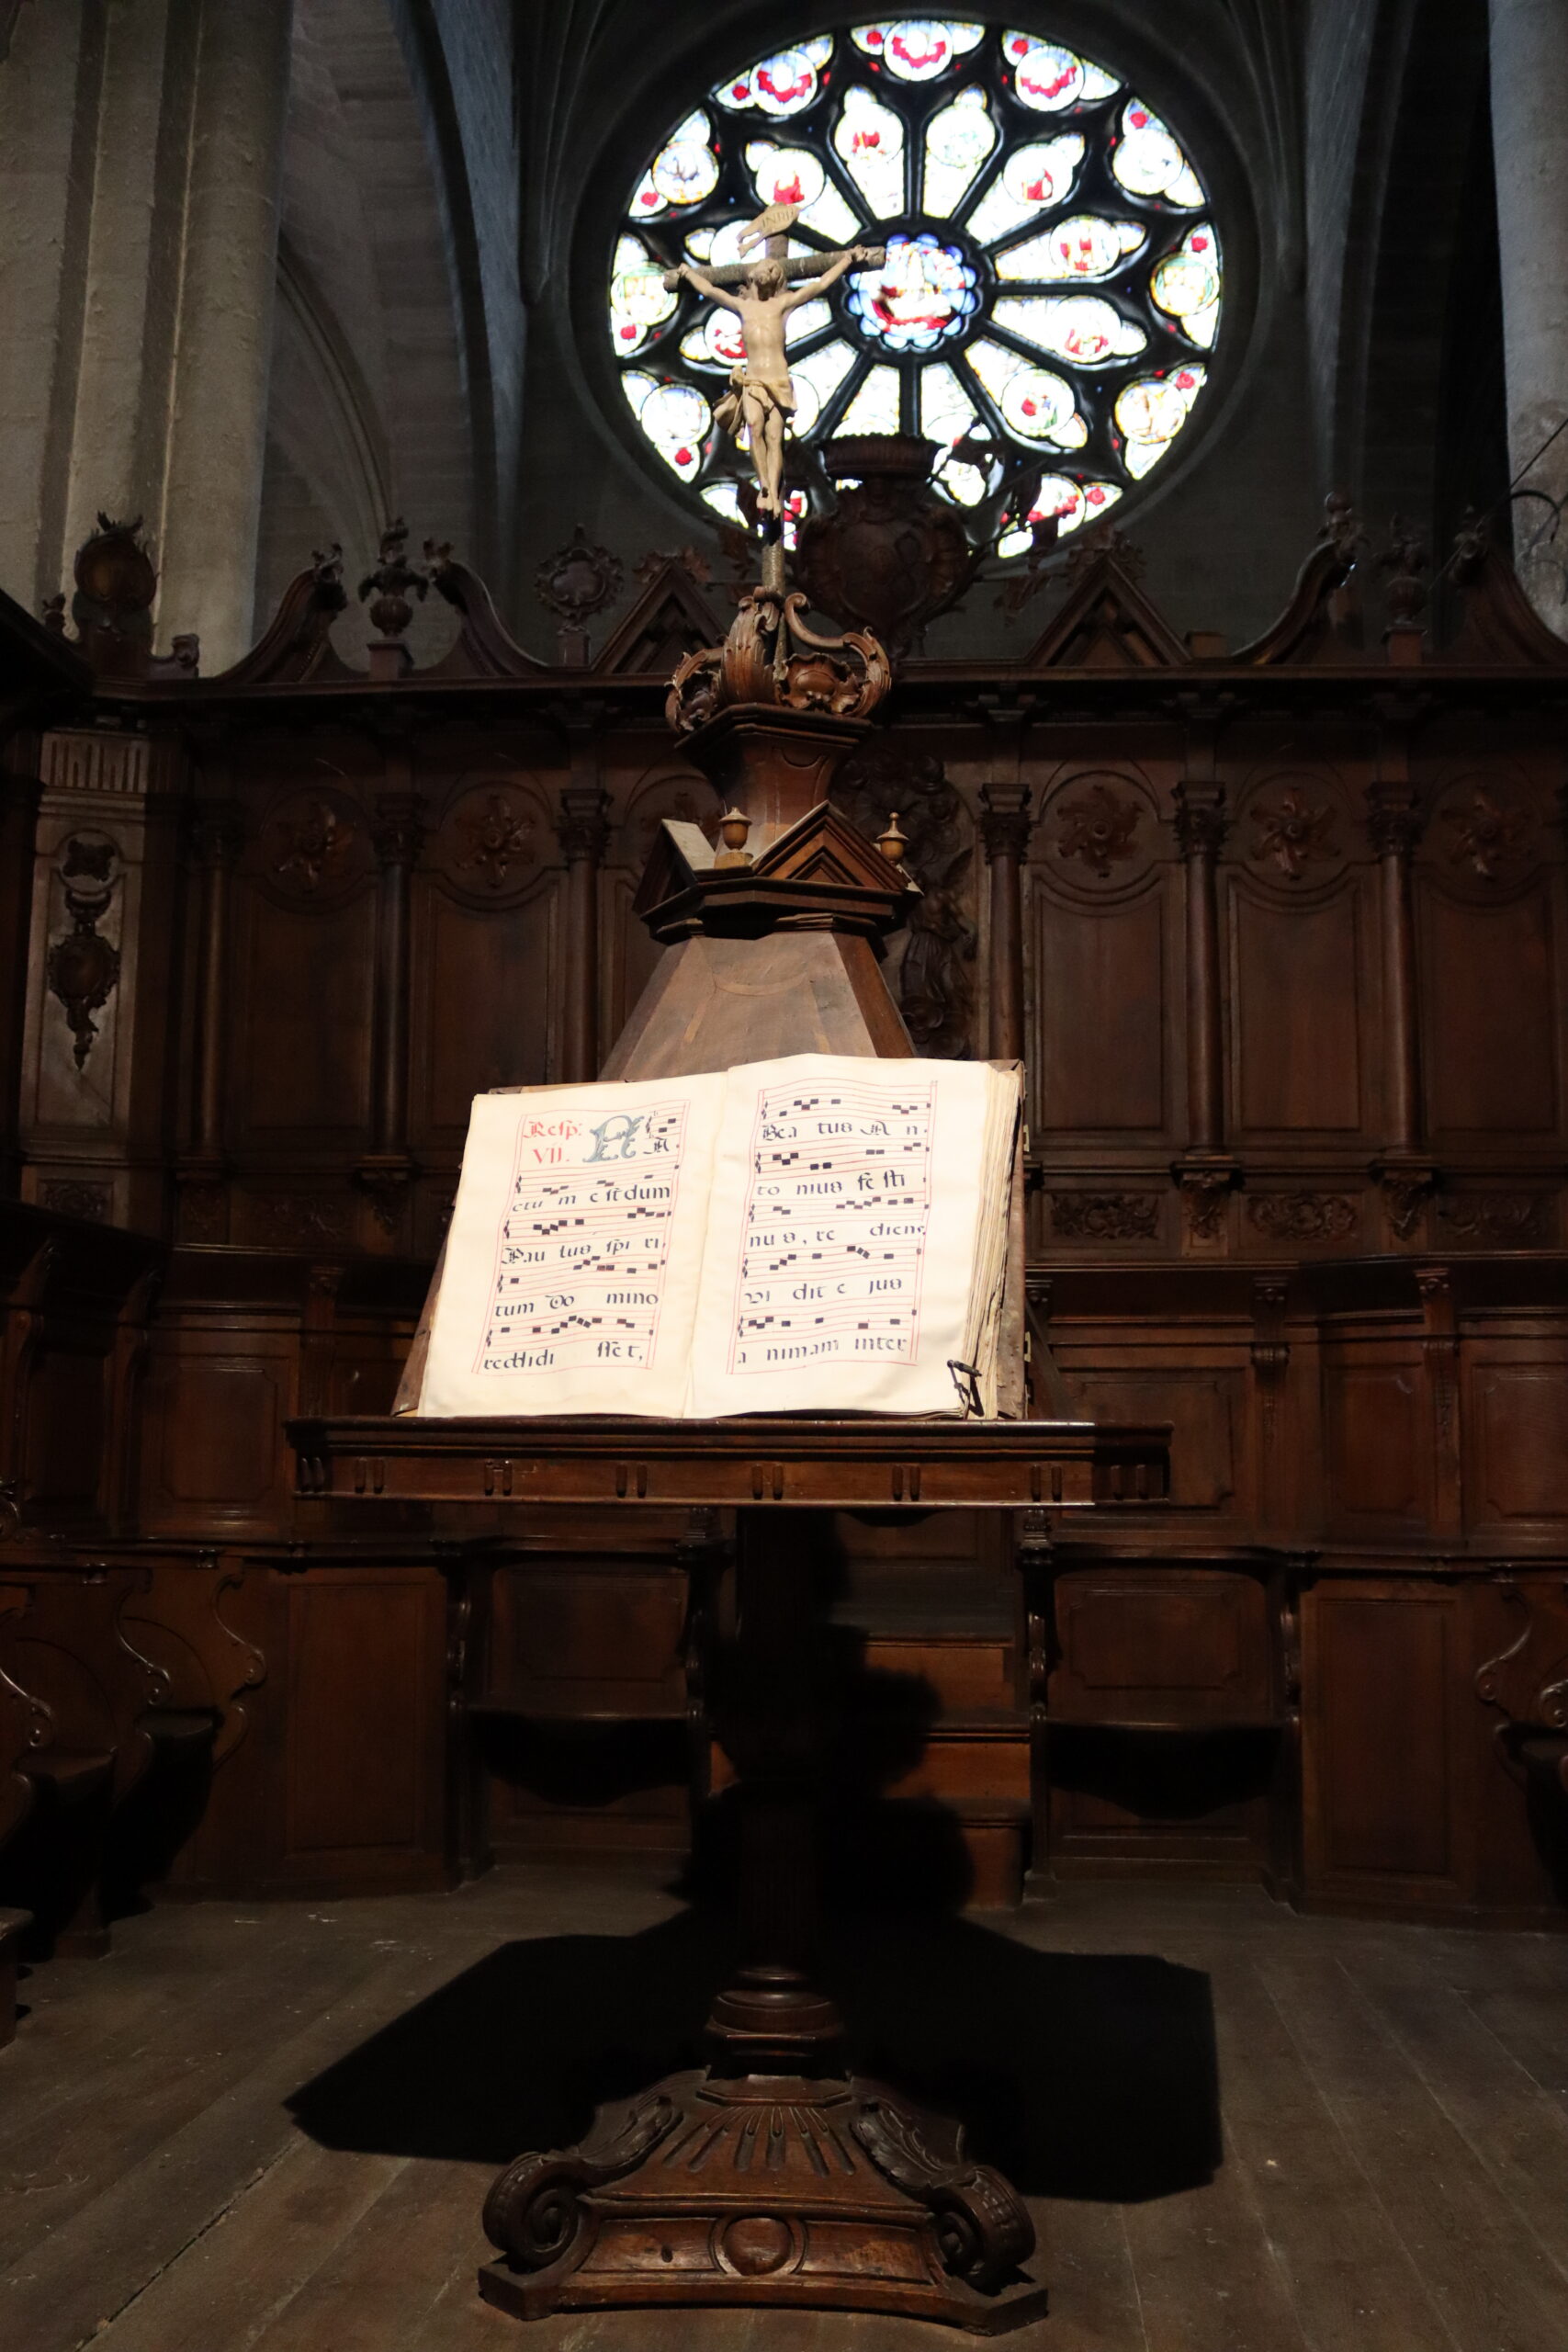 INRI
Resp: F A
VII.
ctu m est dum
Pau lus spi ri
tum Do mino
reddidi sset,
Bea tus A n-
to nius fe sti
nu s, re diens
vi dit e jus
a nimam inter